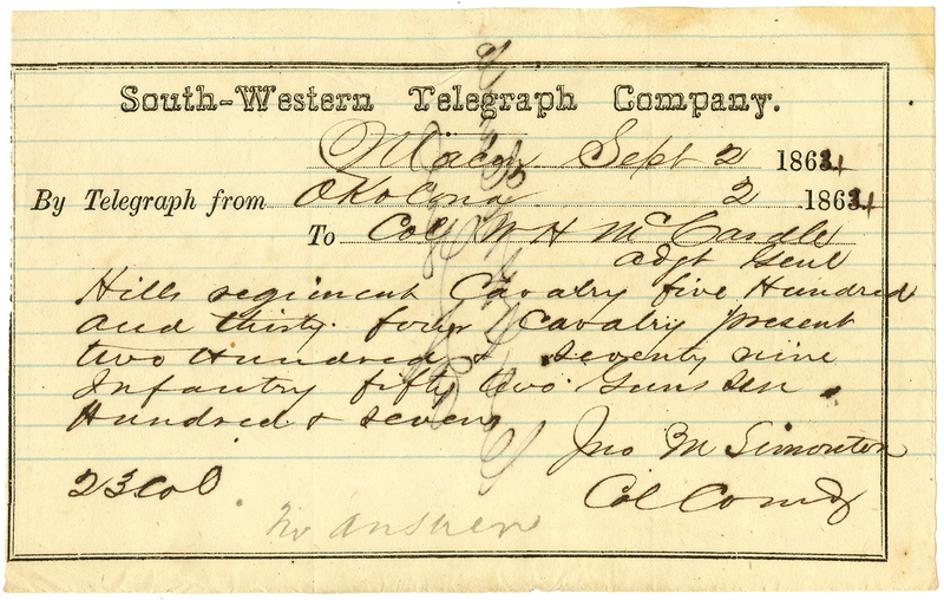 South-Western Telegraph Company.
Macon Sept 2 1864
By Telegraph from Okolona 2 1864
To Col W H McCardle
adgt Genl
Hills regiment Cavalry five Hundred
and thirty four Cavalry present
two Hundred & seventy nine
Infantry fifty two Guns
Hundred & seven
Jno M Simonton
23 Col
Col Comdg
No answer